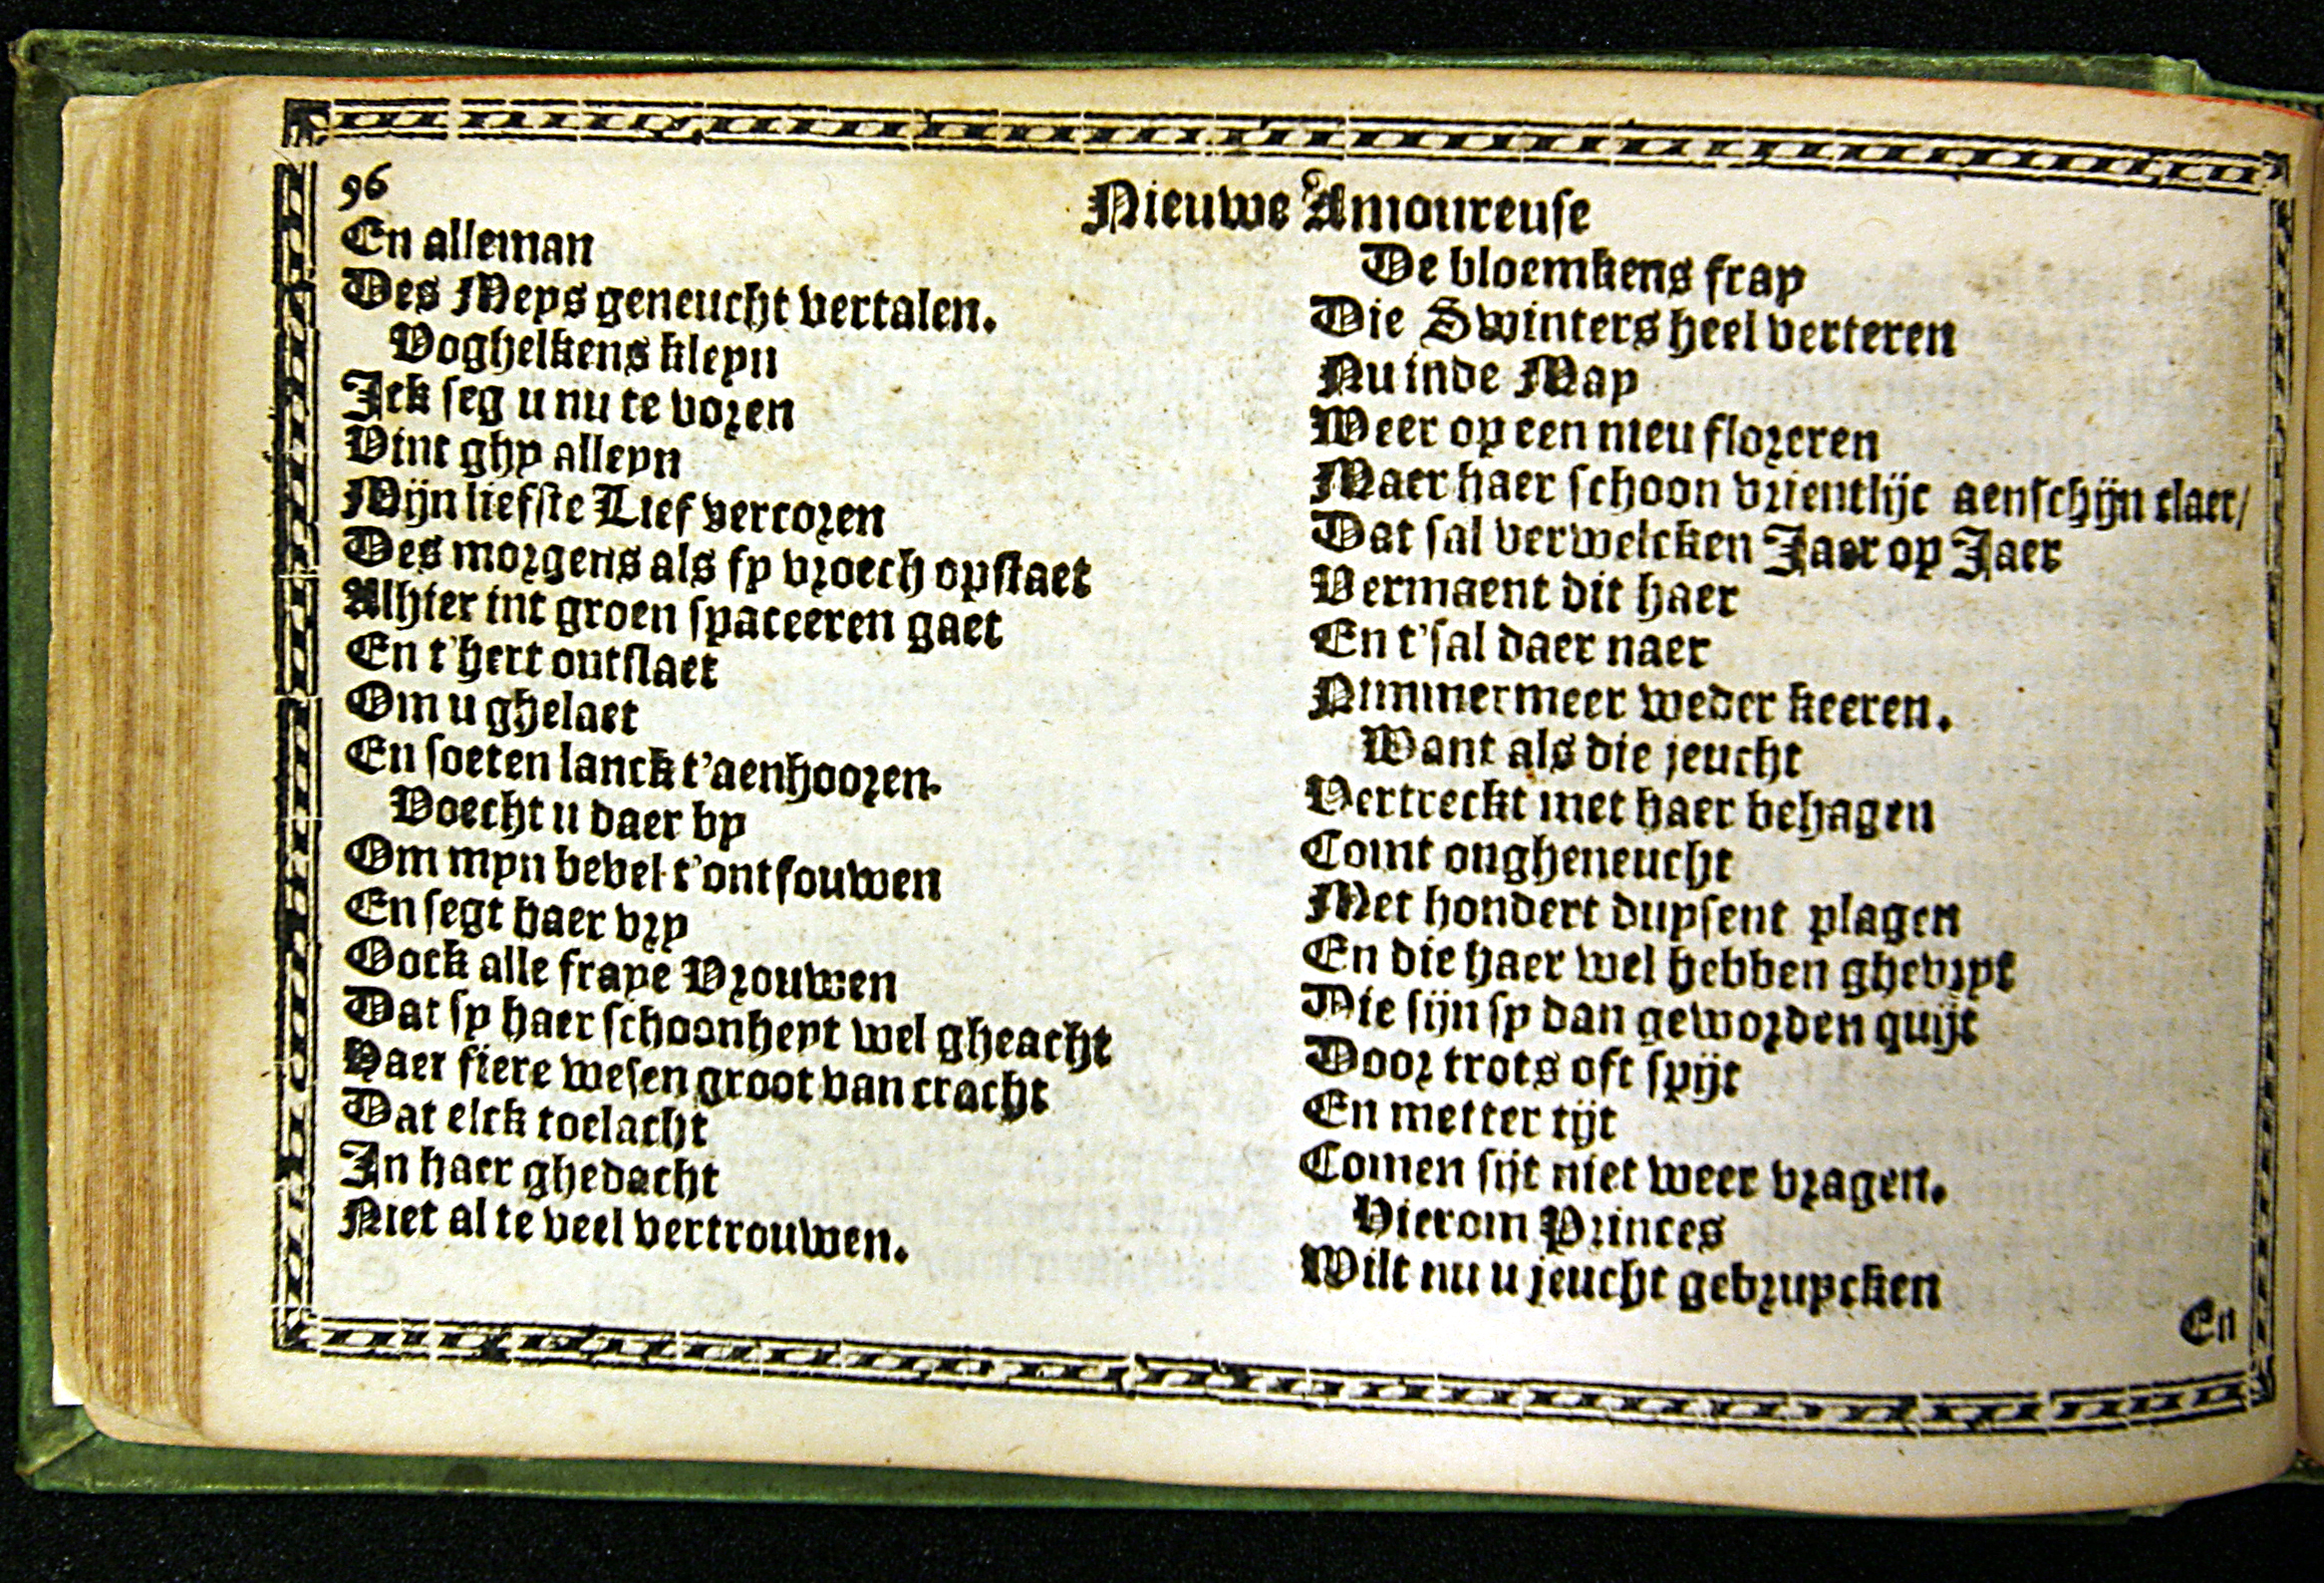 96
Nieuwe Amoureuse
En alleman
Des Meys geneucht vertalen.
Voghelkens kleyn
Ick seg u nu te voren
Vint ghy alleyn
Mijn liefste Lief vercoren
Des morgens als sy vroech opstaet
Alhier int groen spaceeren gaet
En t'hert ontslaet
Om u ghelaet
En soeten lanck t'aenhooren.
Voecht u daer by
Om myn bevel t'ontfouwen
En segt haer vry
Oock alle fraye Vrouwen
Dat sy haer schoonheyt wel gheacht
Haer fiere wesen groot van cracht
Dat elck toelacht
In haer ghedacht
Niet al te veel vertrouwen.
De bloemkens fray
Die Swinters heel verteren
Nu inde May
Weer op een nieu floreren
Maer haer schoon vrientlijc aenschijn claer/
Dat sal verwelcken Jaer op Jaer
Vermaent dit haer
En t'sal daer naer
Nimmermeer weder keeren.
Want als die jeucht
Vertreckt met haer behagen
Comt ongheneucht
Met hondert duysent plagen
En die haer wel hebben ghevryt
Die sijn sy dan geworden quijt
Door trots oft spijt
En metter tijt
Comen sijt niet weer vragen.
Hierom Princes
Wilt nu u jeucht gebruycken
En